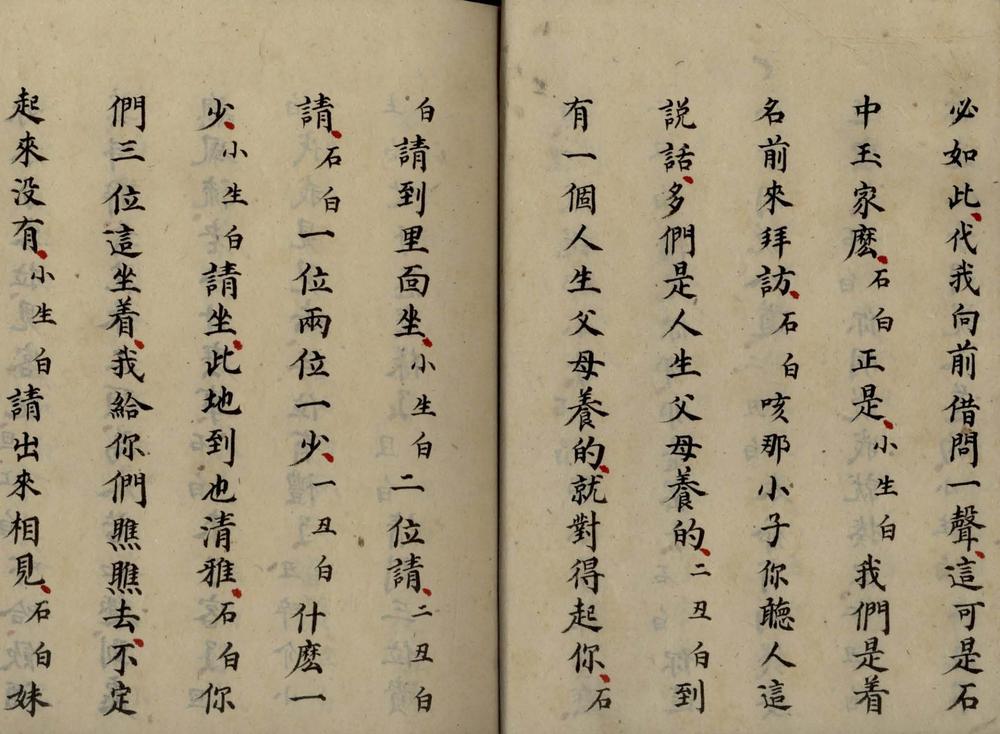 必如此代我向前借問一聲這可是石
中玉家麽石白正是小生白我們是着
名前來拜訪石白咳那小子你聽人這
説話多們是人生父母養的二丑白到
有一個人生父母養的就對得起你石
白請到里面坐小生白二位請二丑白
請石白一位兩位一少一丑白什麽一
少小生白請坐此地到也清雅石白你
們三位這坐着我給你們瞧瞧去不定
起來没有小生白請出來相見石白妹